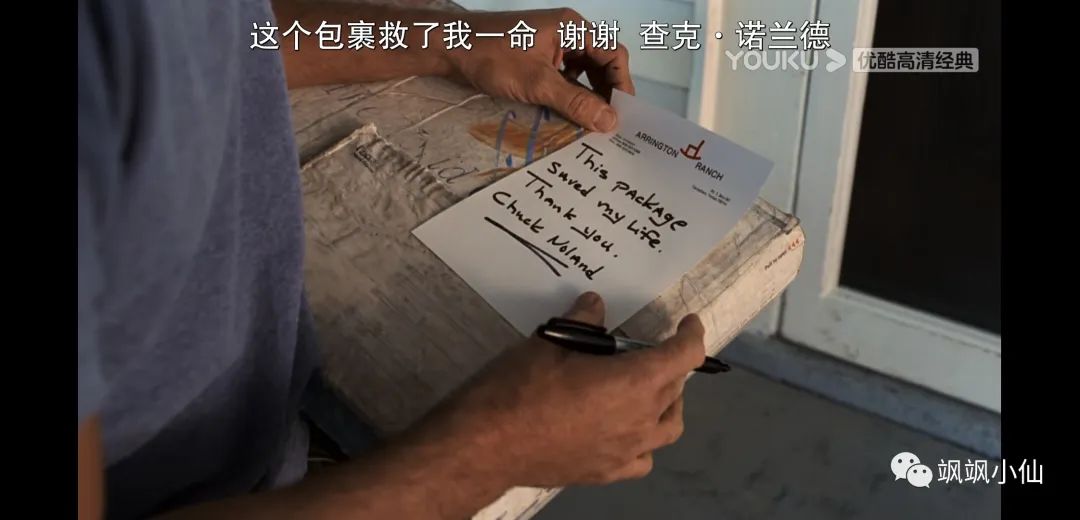 这个包裹救了我一命 谢谢 查克·诺兰德
YOUKU 优酷高清经典
ARRINGTON RANCH
This PACKAge
Saved my Life.
Thank you.
Chuck Noland
飒飒小仙